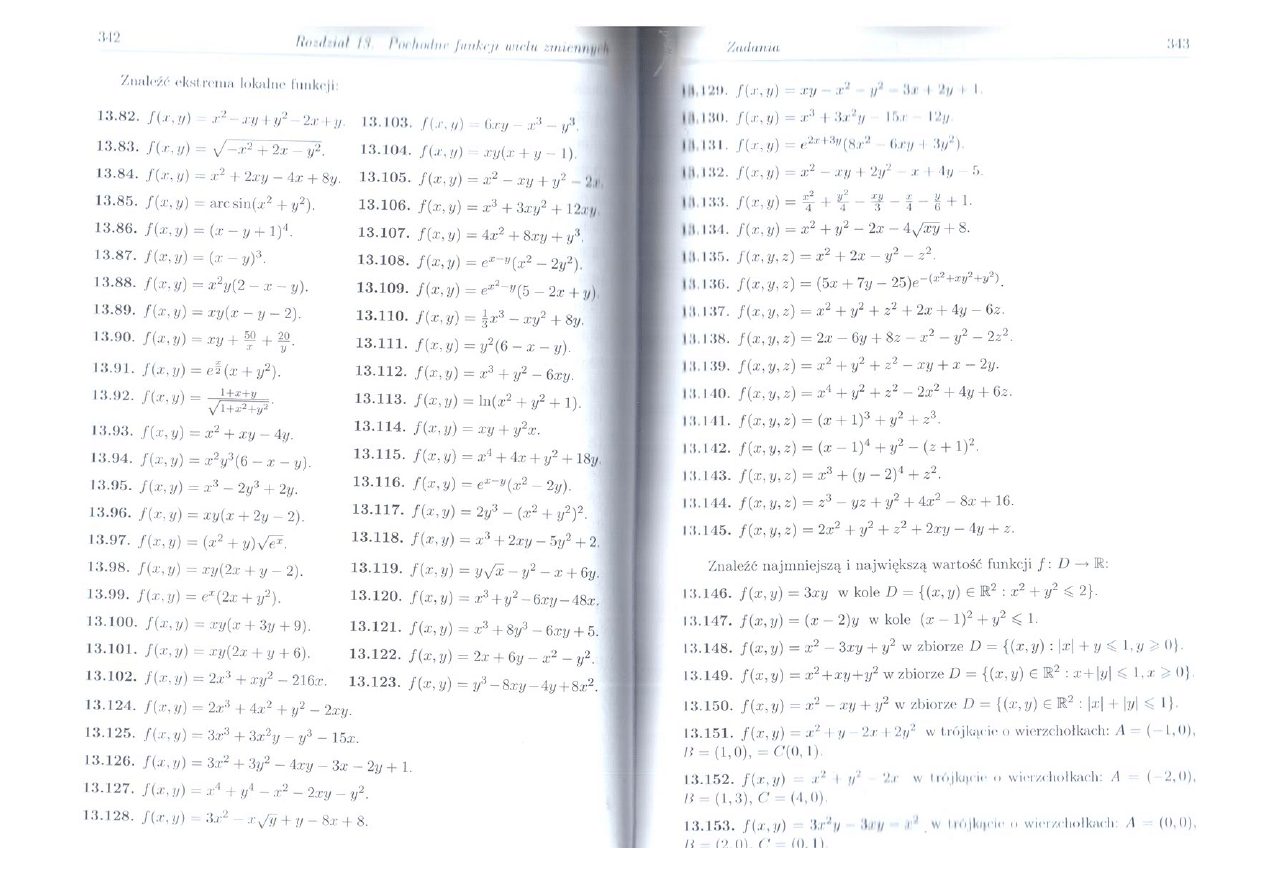 342
Rozdział 13. Pochodne funkcji wielu zmiennych
Znaleźć ekstrema lokalne funkcji:
13.82. f(x, y) = x² − xy + y² − 2x + y.
13.83. f(x, y) = √(−x² + 2x − y²).
13.84. f(x, y) = x² + 2xy − 4x + 8y.
13.85. f(x, y) = arc sin(x² + y²).
13.86. f(x, y) = (x − y + 1)⁴.
13.87. f(x, y) = (x − y)³.
13.88. f(x, y) = x²y(2 − x − y).
13.89. f(x, y) = xy(x − y − 2).
13.90. f(x, y) = xy + 50/x + 20/y.
13.91. f(x, y) = e^(x/2)(x + y²).
13.92. f(x, y) = (1+x+y)/√(1+x²+y²).
13.93. f(x, y) = x² + xy − 4y.
13.94. f(x, y) = x²y³(6 − x − y).
13.95. f(x, y) = x³ − 2y³ + 2y.
13.96. f(x, y) = xy(x + 2y − 2).
13.97. f(x, y) = (x² + y)√(eˣ).
13.98. f(x, y) = xy(2x + y − 2).
13.99. f(x, y) = eˣ(2x + y²).
13.100. f(x, y) = xy(x + 3y + 9).
13.101. f(x, y) = xy(2x + y + 6).
13.102. f(x, y) = 2x³ + xy² − 216x.
13.103. f(x, y) = 6xy − x³ − y³.
13.104. f(x, y) = xy(x + y − 1).
13.105. f(x, y) = x² − xy + y² − 2x.
13.106. f(x, y) = x³ + 3xy² + 12xy.
13.107. f(x, y) = 4x² + 8xy + y³.
13.108. f(x, y) = e^(x−y)(x² − 2y²).
13.109. f(x, y) = e^(x²−y)(5 − 2x + y).
13.110. f(x, y) = ⅓x³ − xy² + 8y.
13.111. f(x, y) = y²(6 − x − y).
13.112. f(x, y) = x³ + y² − 6xy.
13.113. f(x, y) = ln(x² + y² + 1).
13.114. f(x, y) = xy + y²x.
13.115. f(x, y) = x⁴ + 4x + y² + 18y.
13.116. f(x, y) = e^(x−y)(x² − 2y).
13.117. f(x, y) = 2y³ − (x² + y²)².
13.118. f(x, y) = x³ + 2xy − 5y² + 2.
13.119. f(x, y) = y√x − y² − x + 6y.
13.120. f(x, y) = x³ + y² − 6xy − 48x.
13.121. f(x, y) = x³ + 8y³ − 6xy + 5.
13.122. f(x, y) = 2x + 6y − x² − y².
13.123. f(x, y) = y³ − 8xy − 4y + 8x².
13.124. f(x, y) = 2x³ + 4x² + y² − 2xy.
13.125. f(x, y) = 3x³ + 3x²y − y³ − 15x.
13.126. f(x, y) = 3x² + 3y² − 4xy − 3x − 2y + 1.
13.127. f(x, y) = x⁴ + y⁴ − x² − 2xy − y².
13.128. f(x, y) = 3x² − x√y + y − 8x + 8.
Zadania
343
13.129. f(x, y) = xy − x² − y² − 3x + 2y + 1.
13.130. f(x, y) = x³ + 3x²y − 15x − 12y.
13.131. f(x, y) = e^(2x+3y)(8x² − 6xy + 3y²).
13.132. f(x, y) = x² − xy + 2y² − x + 4y − 5.
13.133. f(x, y) = x²/4 + y²/4 − xy/3 − x/4 − y/6 + 1.
13.134. f(x, y) = x² + y² − 2x − 4√(xy) + 8.
13.135. f(x, y, z) = x² + 2x − y² − z².
13.136. f(x, y, z) = (5x + 7y − 25)e^(−(x²+xy²+y²)).
13.137. f(x, y, z) = x² + y² + z² + 2x + 4y − 6z.
13.138. f(x, y, z) = 2x − 6y + 8z − x² − y² − 2z².
13.139. f(x, y, z) = x² + y² + z² − xy + x − 2y.
13.140. f(x, y, z) = x⁴ + y² + z² − 2x² + 4y + 6z.
13.141. f(x, y, z) = (x + 1)³ + y² + z³.
13.142. f(x, y, z) = (x − 1)⁴ + y² − (z + 1)².
13.143. f(x, y, z) = x³ + (y − 2)⁴ + z².
13.144. f(x, y, z) = z³ − yz + y² + 4x² − 8x + 16.
13.145. f(x, y, z) = 2x² + y² + z² + 2xy − 4y + z.
Znaleźć najmniejszą i największą wartość funkcji f: D → ℝ:
13.146. f(x, y) = 3xy w kole D = {(x, y) ∈ ℝ² : x² + y² ⩽ 2}.
13.147. f(x, y) = (x − 2)y w kole (x − 1)² + y² ⩽ 1.
13.148. f(x, y) = x² − 3xy + y² w zbiorze D = {(x, y) : |x| + y ⩽ 1, y ⩾ 0}.
13.149. f(x, y) = x² + xy + y² w zbiorze D = {(x, y) ∈ ℝ² : x + |y| ⩽ 1, x ⩾ 0}.
13.150. f(x, y) = x² − xy + y² w zbiorze D = {(x, y) ∈ ℝ² : |x| + |y| ⩽ 1}.
13.151. f(x, y) = x² + y − 2x + 2y² w trójkącie o wierzchołkach: A = (−1, 0),
B = (1, 0), = C(0, 1).
13.152. f(x, y) = x² + y² − 2x w trójkącie o wierzchołkach: A = (−2, 0),
B = (1, 3), C = (4, 0).
13.153. f(x, y) = 3x²y − 3xy − x² w trójkącie o wierzchołkach: A = (0, 0),
B = (2, 0), C = (0, 1).